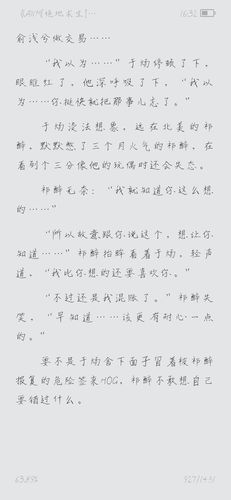 [AWM[绝地求生]…
16:32
俞浅兮做交易……
“我以为……”于炀停顿了下，
眼眶红了，他深呼吸了下，“我以
为……你挺快就把那事儿忘了。”
于炀没法想象，远在北美的祁
醉，默默憋了三个月火气的祁醉，在
看到个三分像他的玩偶时还会失态。
祁醉无奈：“我就知道你这么想
的……”
“所以故意跟你说这个，想让你
知道……”祁醉抬眸看着于炀，轻声
道，“我比你想的还要喜欢你。”
“不过还是我混账了。”祁醉失
笑，“早知道……该更有耐心一点
的。”
要不是于炀舍下面子冒着被祁醉
报复的危险签来HOG，祁醉不敢想自己
要错过什么。
63.85%
927/1451